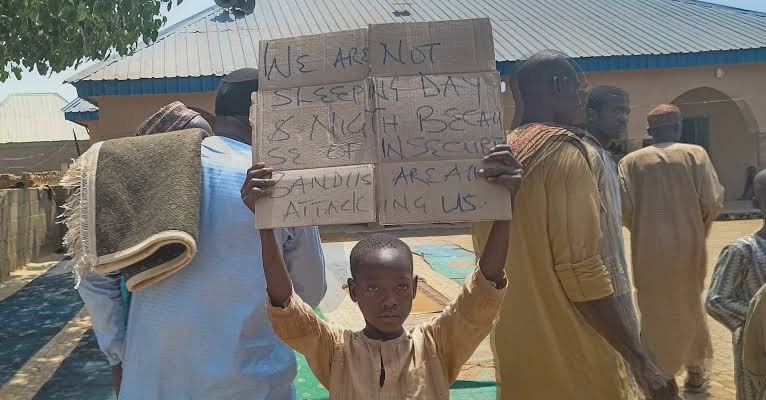 WE ARE NOT
SLEEPING DAY
& NIGTH BECAU
SE OF INSECURIT
BANDITS ARE ALL
ATTACKING US.